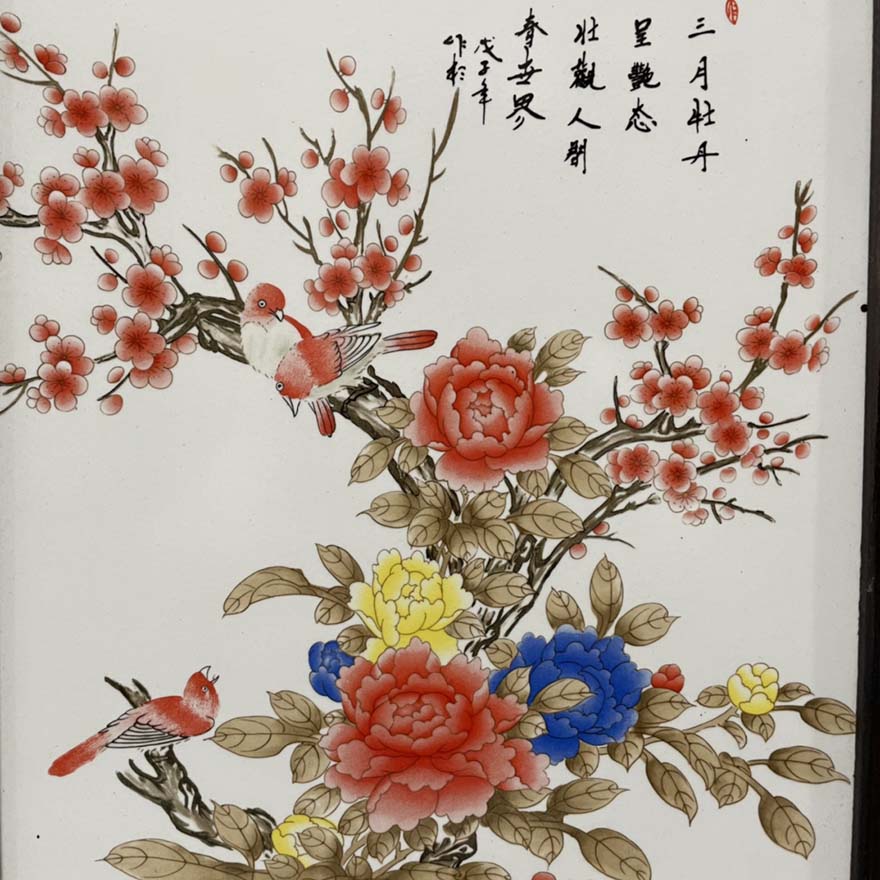 三月牡丹
呈艷态
壮觀人間
春世界
戊子年
作於